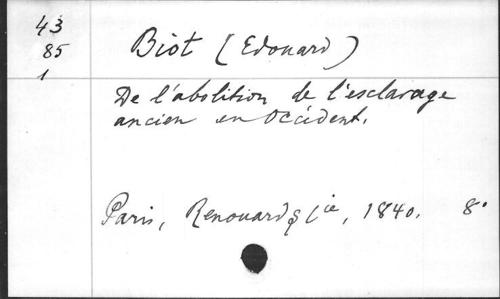 43
85
1
Biot (Edouard)
De l'abolition de l'esclavage
ancien en Occident.
Paris, Renouard & Cie, 1840. 8°